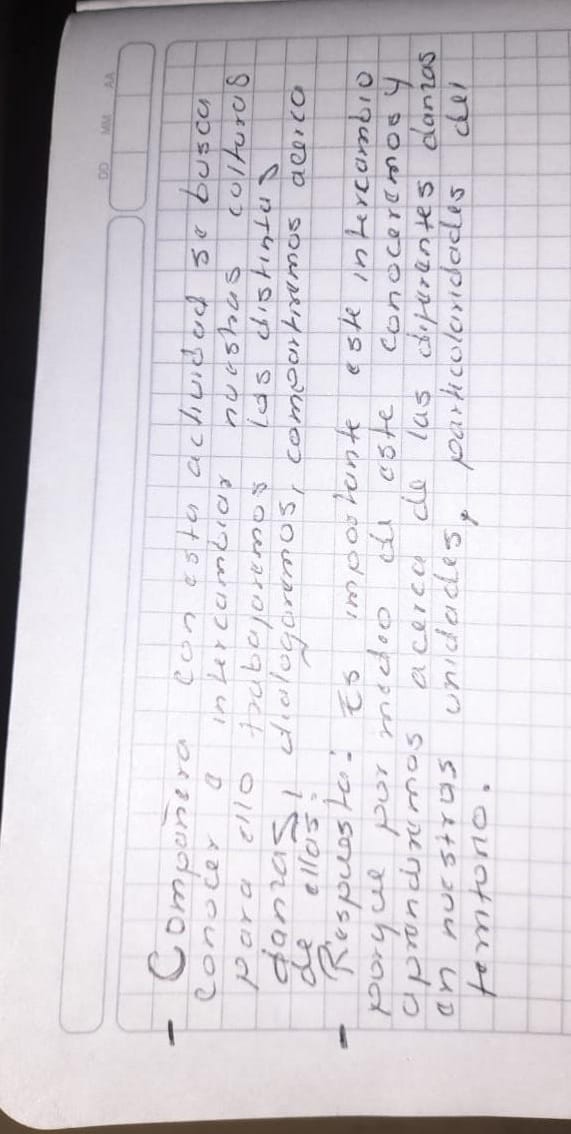 DD MM AA
- Compañera con esta actividad se busca
conocer e intercambiar nuestras culturas
para ello trabajaremos las distintas
danzas, dialogaremos, compartiremos acerca
de ellas;
- Respuesta: Es importante este intercambio
porque por medio de este conoceremos y
aprenderemos acerca de las diferentes danzas
en nuestras unidades, particularidades del
territorio.